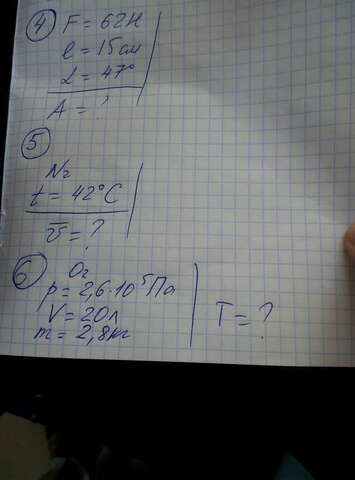 ④ F = 62Н
l = 15см
α = 47°
A = ?
⑤
N₂
t = 42°C
v̅ = ?
⑥ O₂
p = 2,6·10⁵Па
V = 20л
m = 2,8кг
T = ?